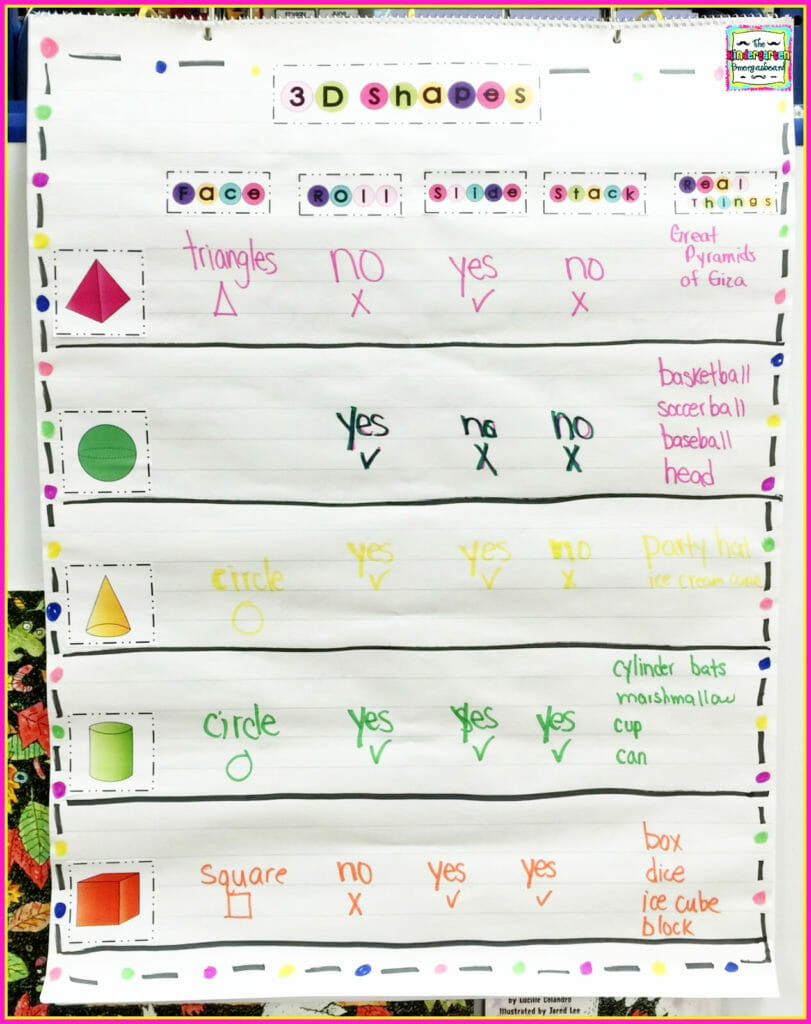 The
Kindergarten
Smorgasboard
3D Shapes
Face Roll Slide Stack Real Things
triangles no yes no
X ✓ X
Great
Pyramids
of Giza
yes no no
✓ X X
basketball
soccerball
baseball
head
circle yes yes no
✓ ✓ X
party hat
ice cream cone
circle yes yes yes
✓ ✓ ✓
cylinder bats
marshmallow
cup
can
square no yes yes
X ✓ ✓
box
dice
ice cube
block
by Lucille Colandro
Illustrated by Jared Lee